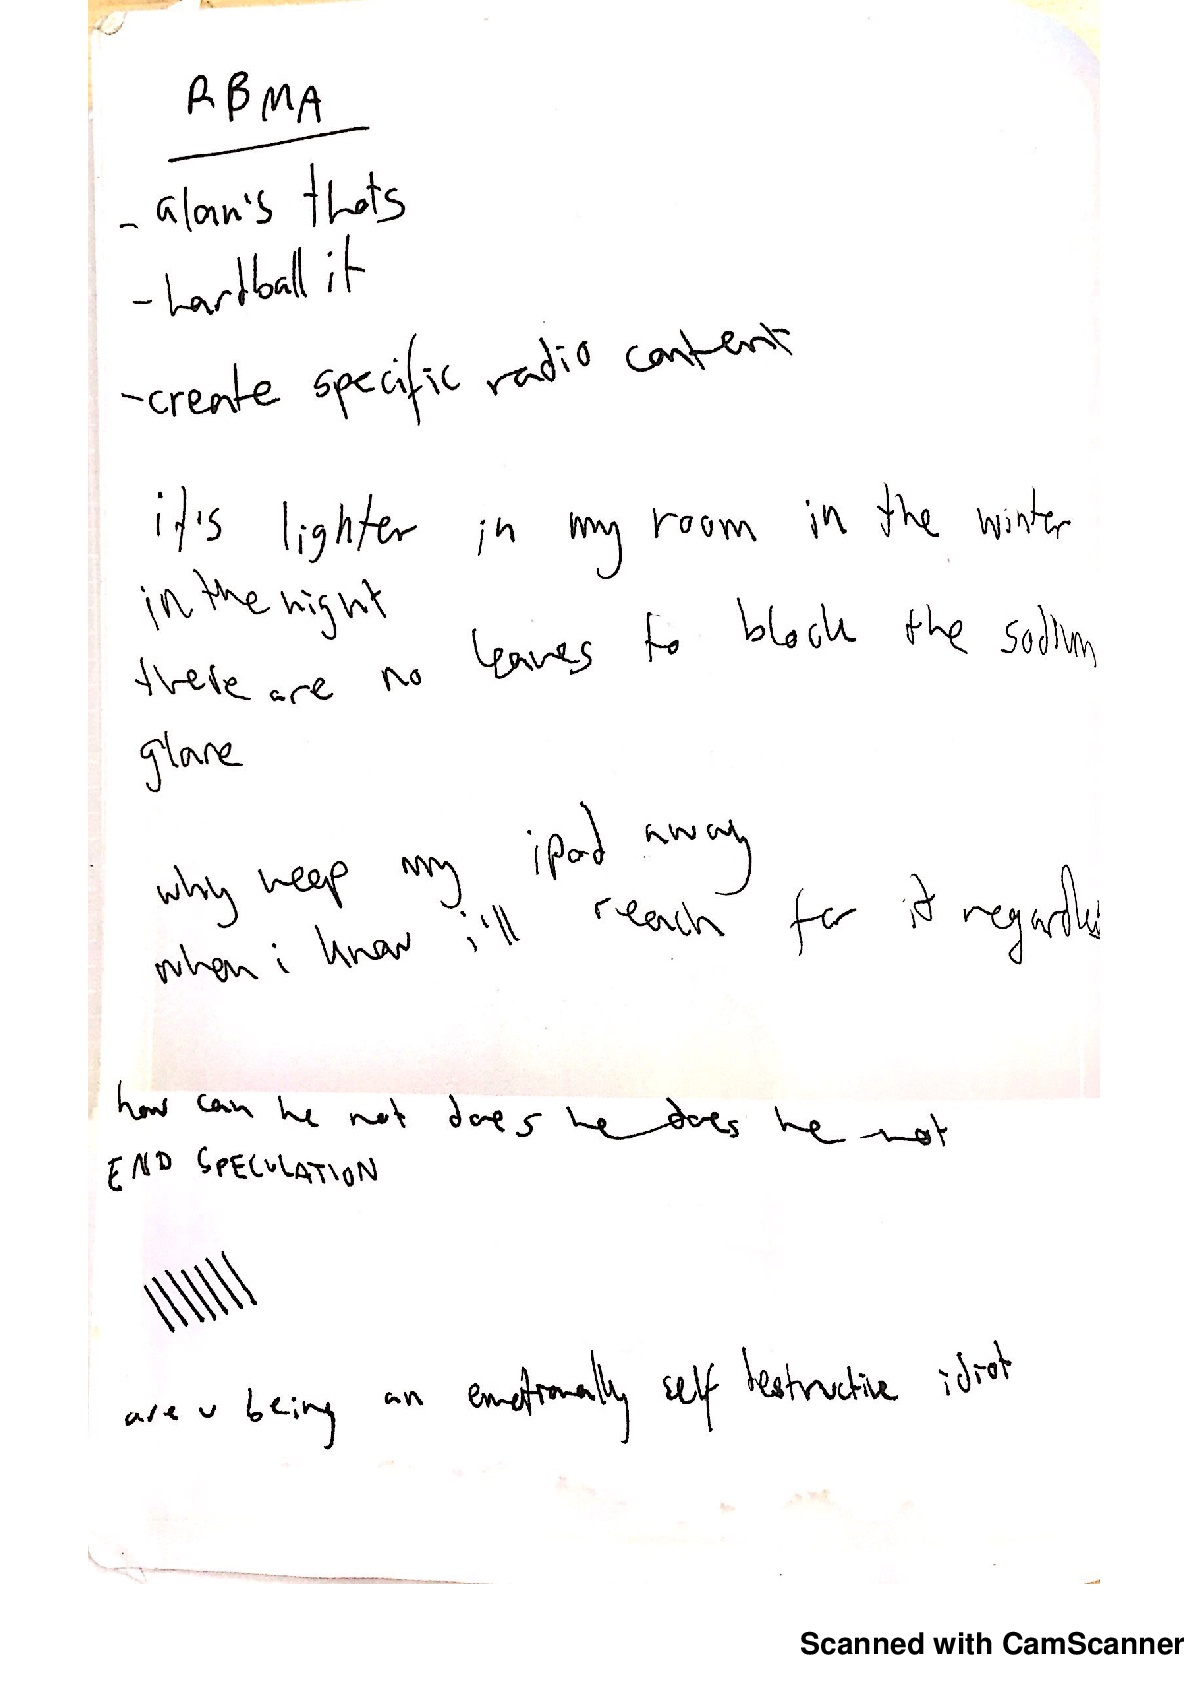 RBMA
- alan's thots
- hardball it
- create specific radio content
it's lighter in my room in the winter
in the night
there are no leaves to block the sodium
glare
why keep my ipad away
when i know i'll reach for it regardless
how can he not does he does he not
END SPECULATION
are u being an emotionally self destructive idiot
Scanned with CamScanner